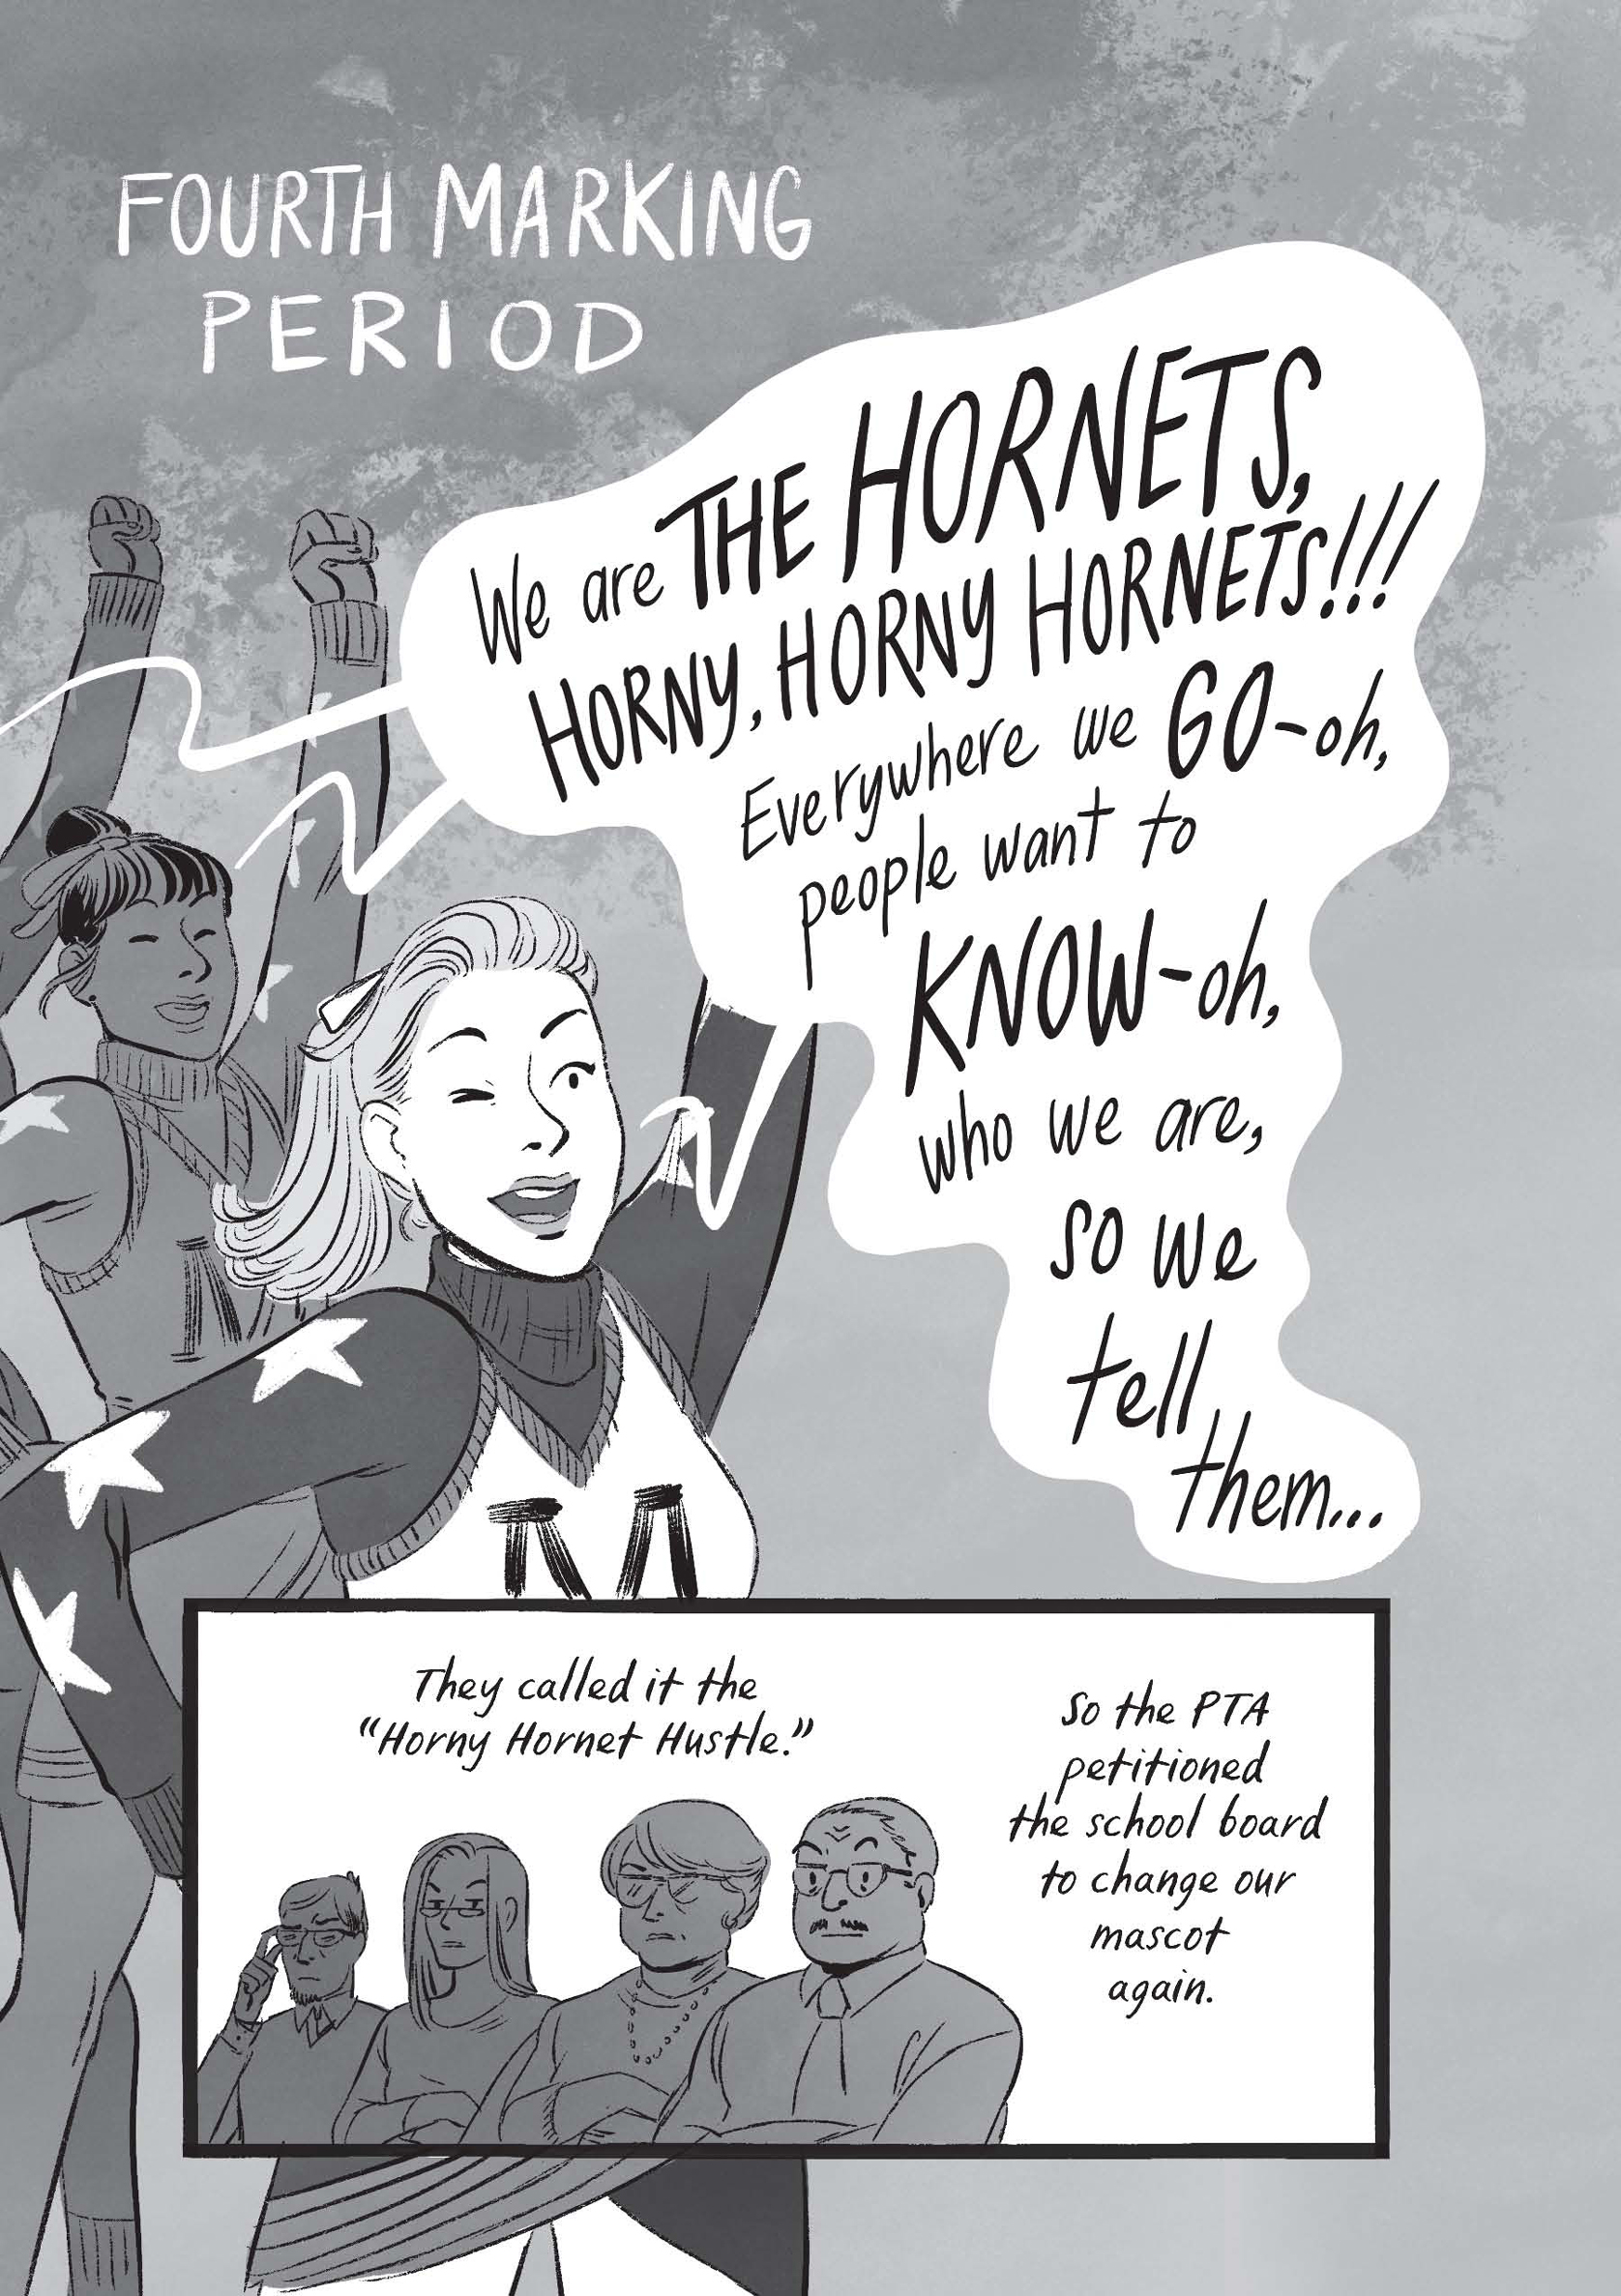 FOURTH MARKING
PERIOD
We are THE HORNETS,
HORNY, HORNY HORNETS!!!
Everywhere we GO-oh,
people want to
KNOW-oh,
who we are,
so we
tell
them...
M
They called it the
“Horny Hornet Hustle.”
So the PTA
petitioned
the school board
to change our
mascot
again.